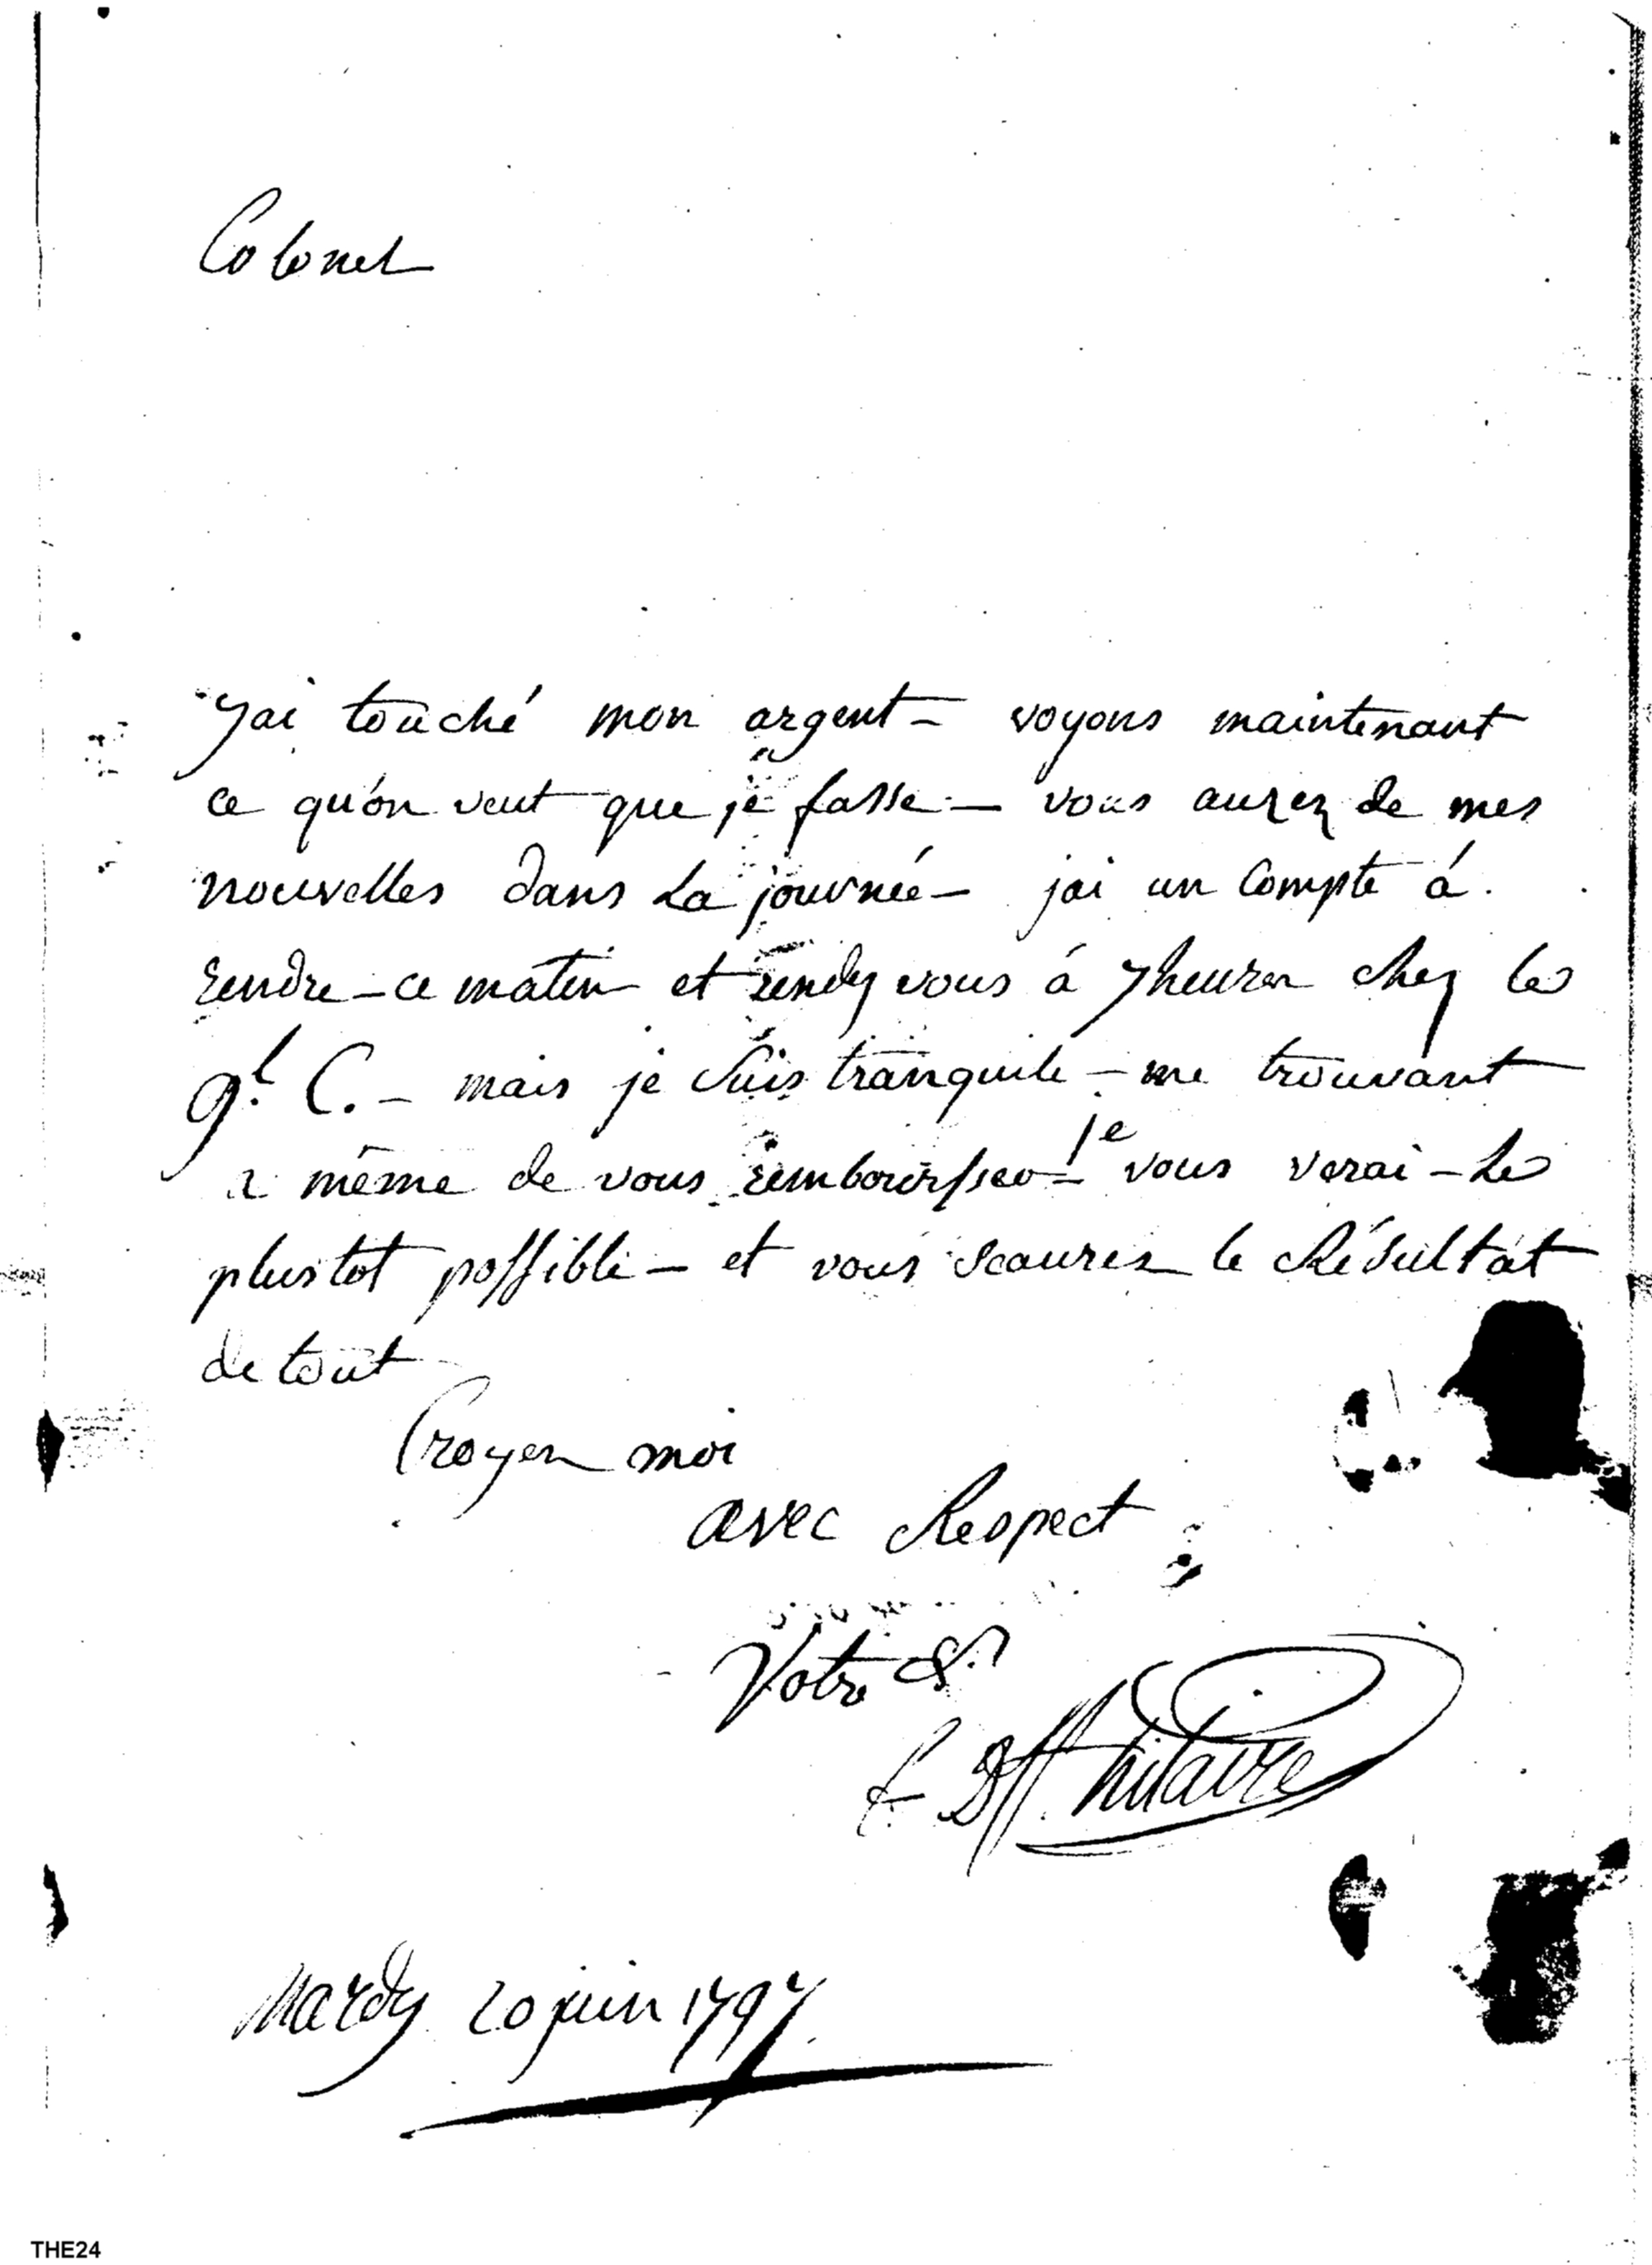 Colonel
J'ai touché mon argent – voyons maintenant
ce qu'on veut que je fasse – vous aurez de mes
nouvelles dans la journée – jai un Compte á
rendre – ce matin et rendez vous á 7 heures chez le
gl. C. – mais je suis tranquile – me trouvant
a même de vous rembourser – je vous verai – le
plustot possible – et vous scaurez le Résultat
de tout
Croyez moi
avec Respect
Votre &.
Hilaire
Mardy 20 juin 1797
THE24